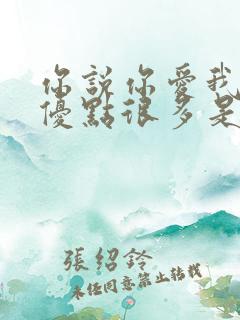 你說你愛我
優點很多是
張紹鈴
未經同意禁止轉載